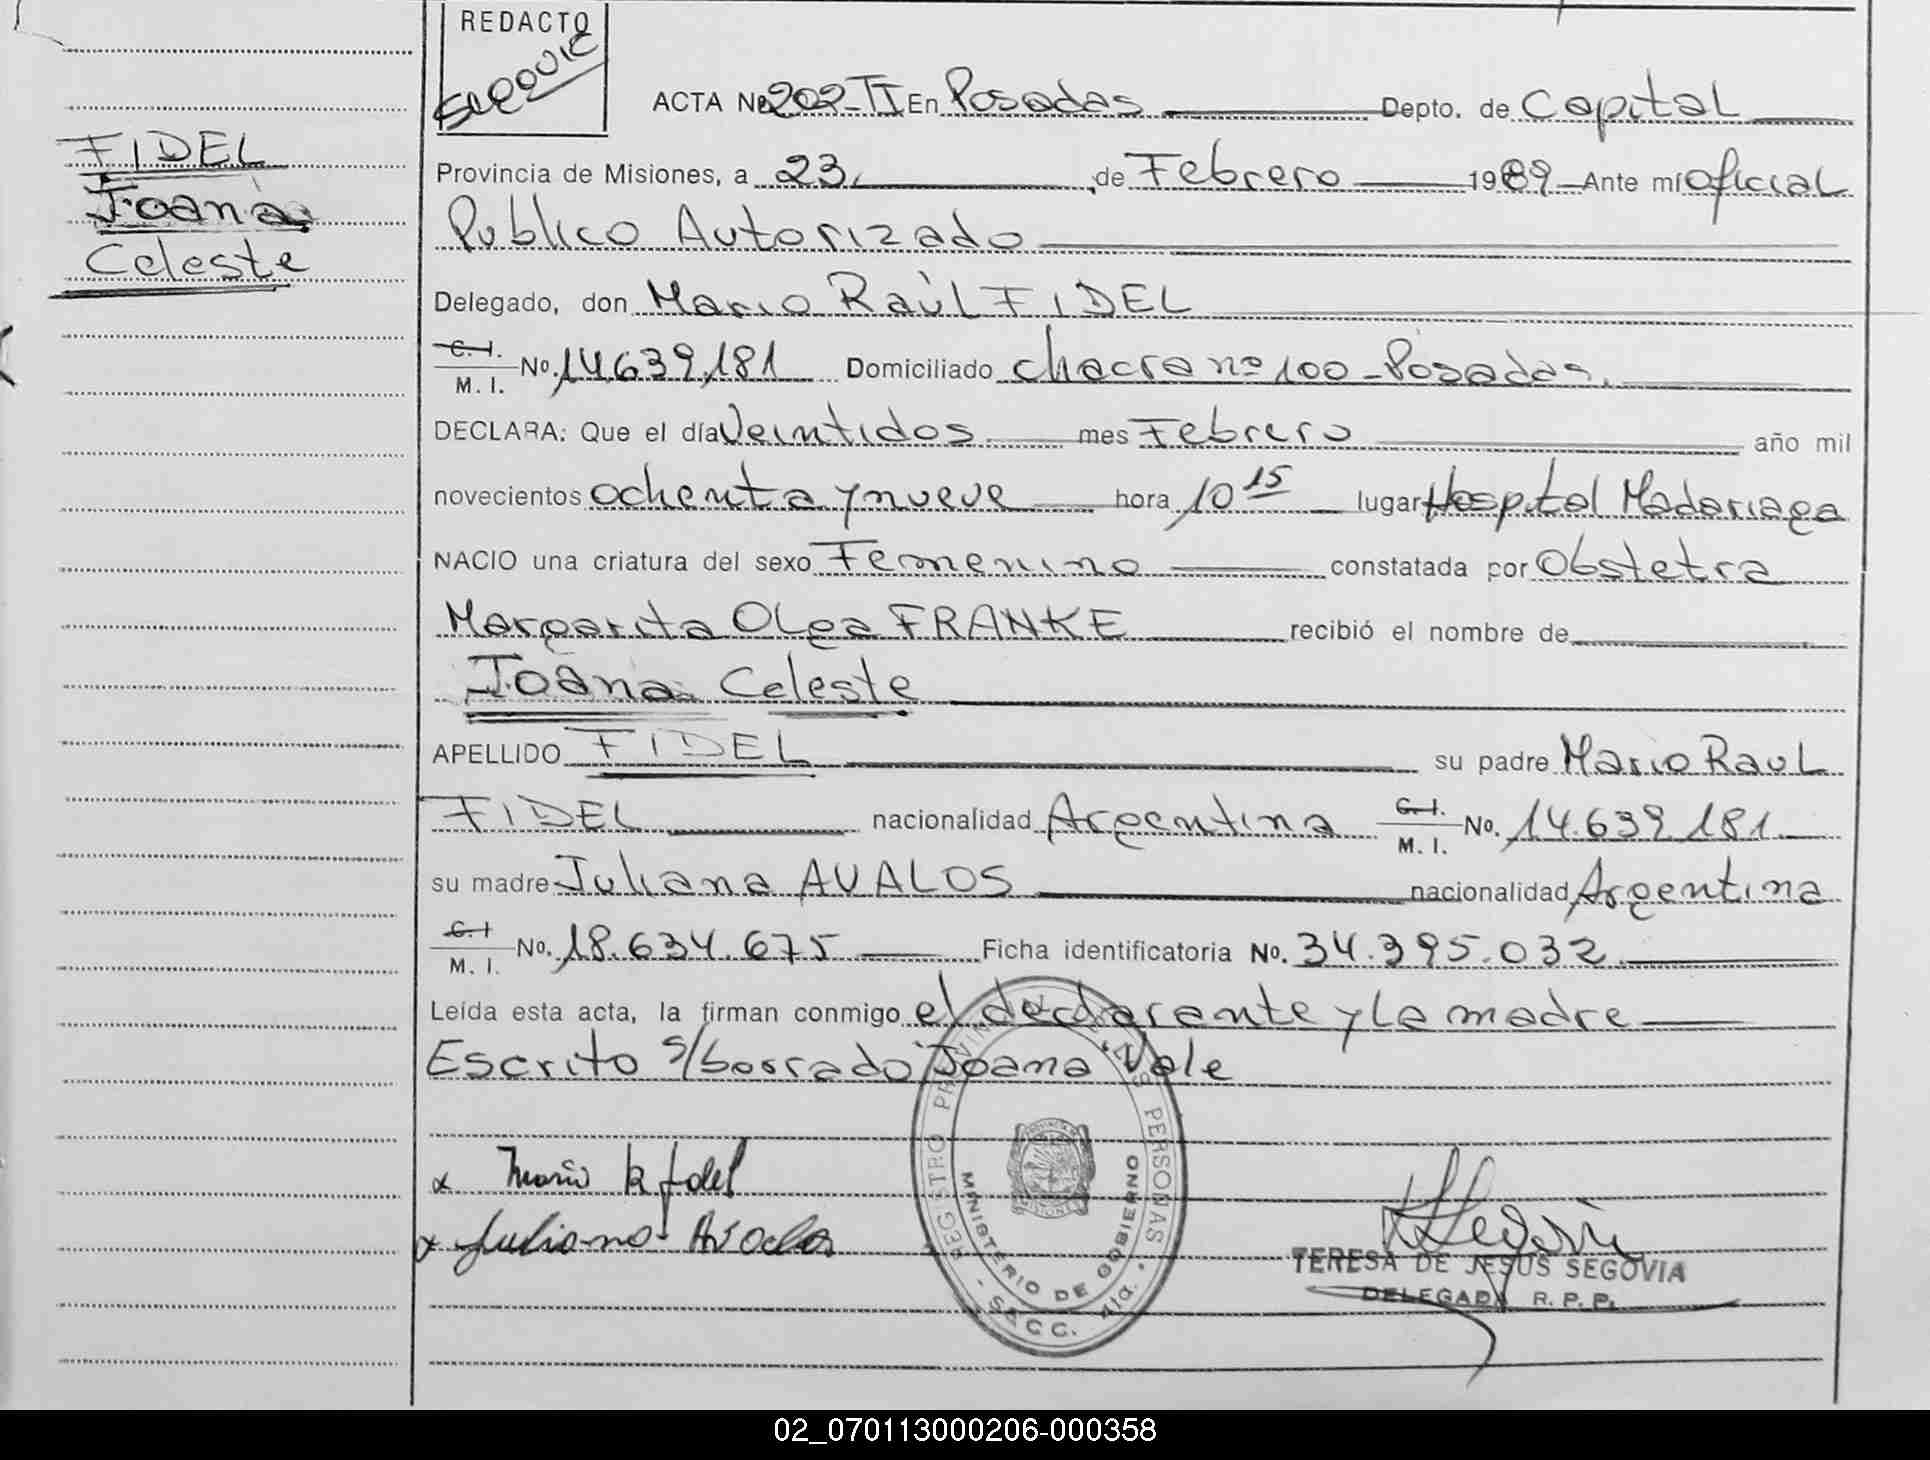 REDACTO
FIDEL
Joana
Celeste
ACTA Nº 202-II En Posadas Depto. de Capital
Provincia de Misiones, a 23, de Febrero 1989 Ante mí oficial
Publico Autorizado
Delegado, don Mario Raúl FIDEL
C. I.
M. I. No. 14.639.181 Domiciliado chacra nº 100 - Posadas.
DECLARA: Que el día Veintidos mes Febrero año mil
novecientos ochenta y nueve hora 10 15 lugar Hospital Madariaga
NACIO una criatura del sexo Femenino constatada por Obstetra
Margarita Olga FRANKE recibió el nombre de
Joana Celeste
APELLIDO FIDEL su padre Mario Raul
FIDEL nacionalidad Argentina C. I. M. I. No. 14.639.181
su madre Juliana AVALOS nacionalidad Argentina
C. I
M. I. No. 18.634.675 Ficha identificatoria No. 34.395.032
Leída esta acta, la firman conmigo el declarante y la madre
Escrito s/borrado "Joana" Vale
x Mario R fidel
x Juliana Avalos
REGISTRO PERSONAS
MINISTERIO DE GOBIERNO
- SECC. 4ta. -
TERESA DE JESUS SEGOVIA
DELEGADA R. P. P.
02_070113000206-000358